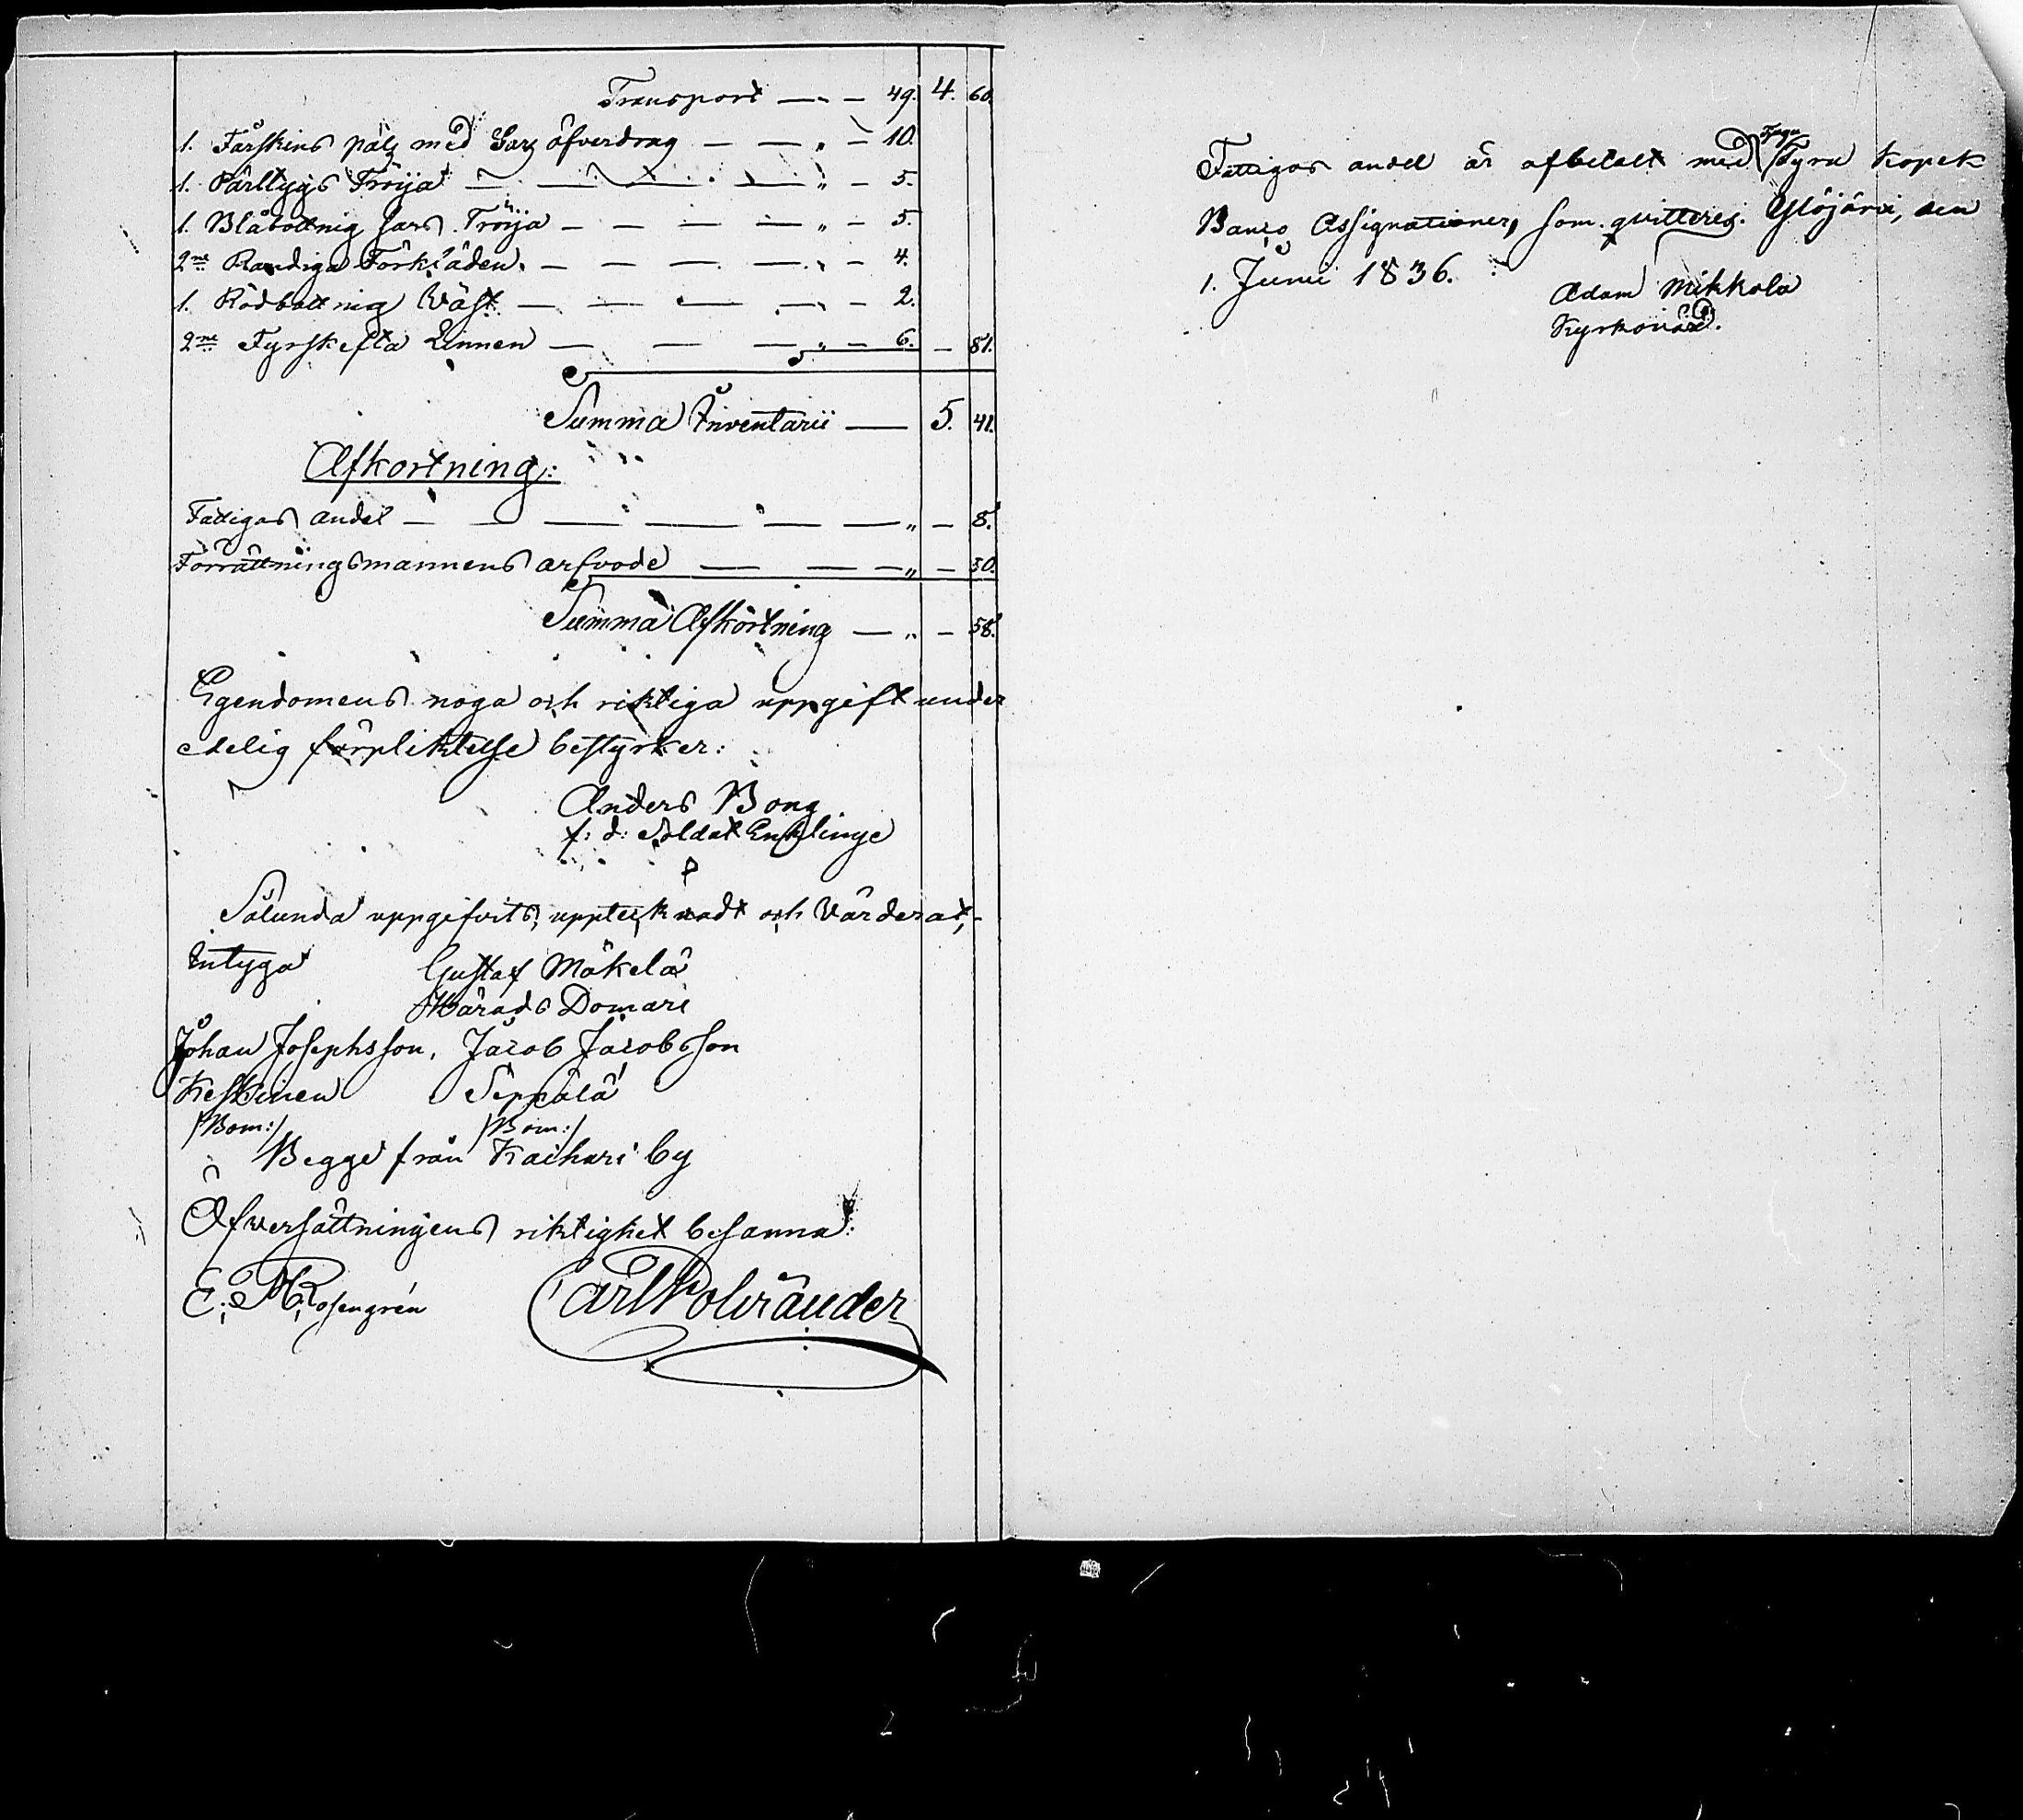 Transport — „ — 49. 4. 60.
1. Fårskins päls med Sarz öfverdrag — — „ — 10.
1. Pärltygs Tröija — — — — „ — 5.
1. Blåbottnig sars Tröija — — — — „ — 5.
2ne Randiga Förkläden. — — — — „ — 4.
1. Rödbottnig Wäst — — — — „ — 2.
2ne Fyrskefta Linnen — — — „ — 6. — 81.
Summa Inventarii — 5. 41.
Afkortning:
Fattigas andel — — — — — — „ — 8.
Förrättningsmannens arfvode — — — „ — 50.
Summa Afkortning — „ — 58.
Egendomens noga och riktiga uppgift under
edelig förpliktelse bestyrker:
Anders Bong
f: d: Soldat Enklinge
Sålunda uppgifvits, upptecknadt och Värderat,
Intyga Gustaf Mäkelä
Härads Domare
Johan Josephsson, Jacob Jacobsson
Keskinen Seppälä
/Bom:/ /Bom:/
Begge från Kaihari by
Öfversättningens riktighet besanna:
E: Rosengrén Carl
Fattigas andel är afbetalt med Tjugu Fyra Kopek
Banco Assignationer, som qvitteres. Ylöjärvi, den
1. Junii 1836.
Adam Mikkola
Kyrkovärd.